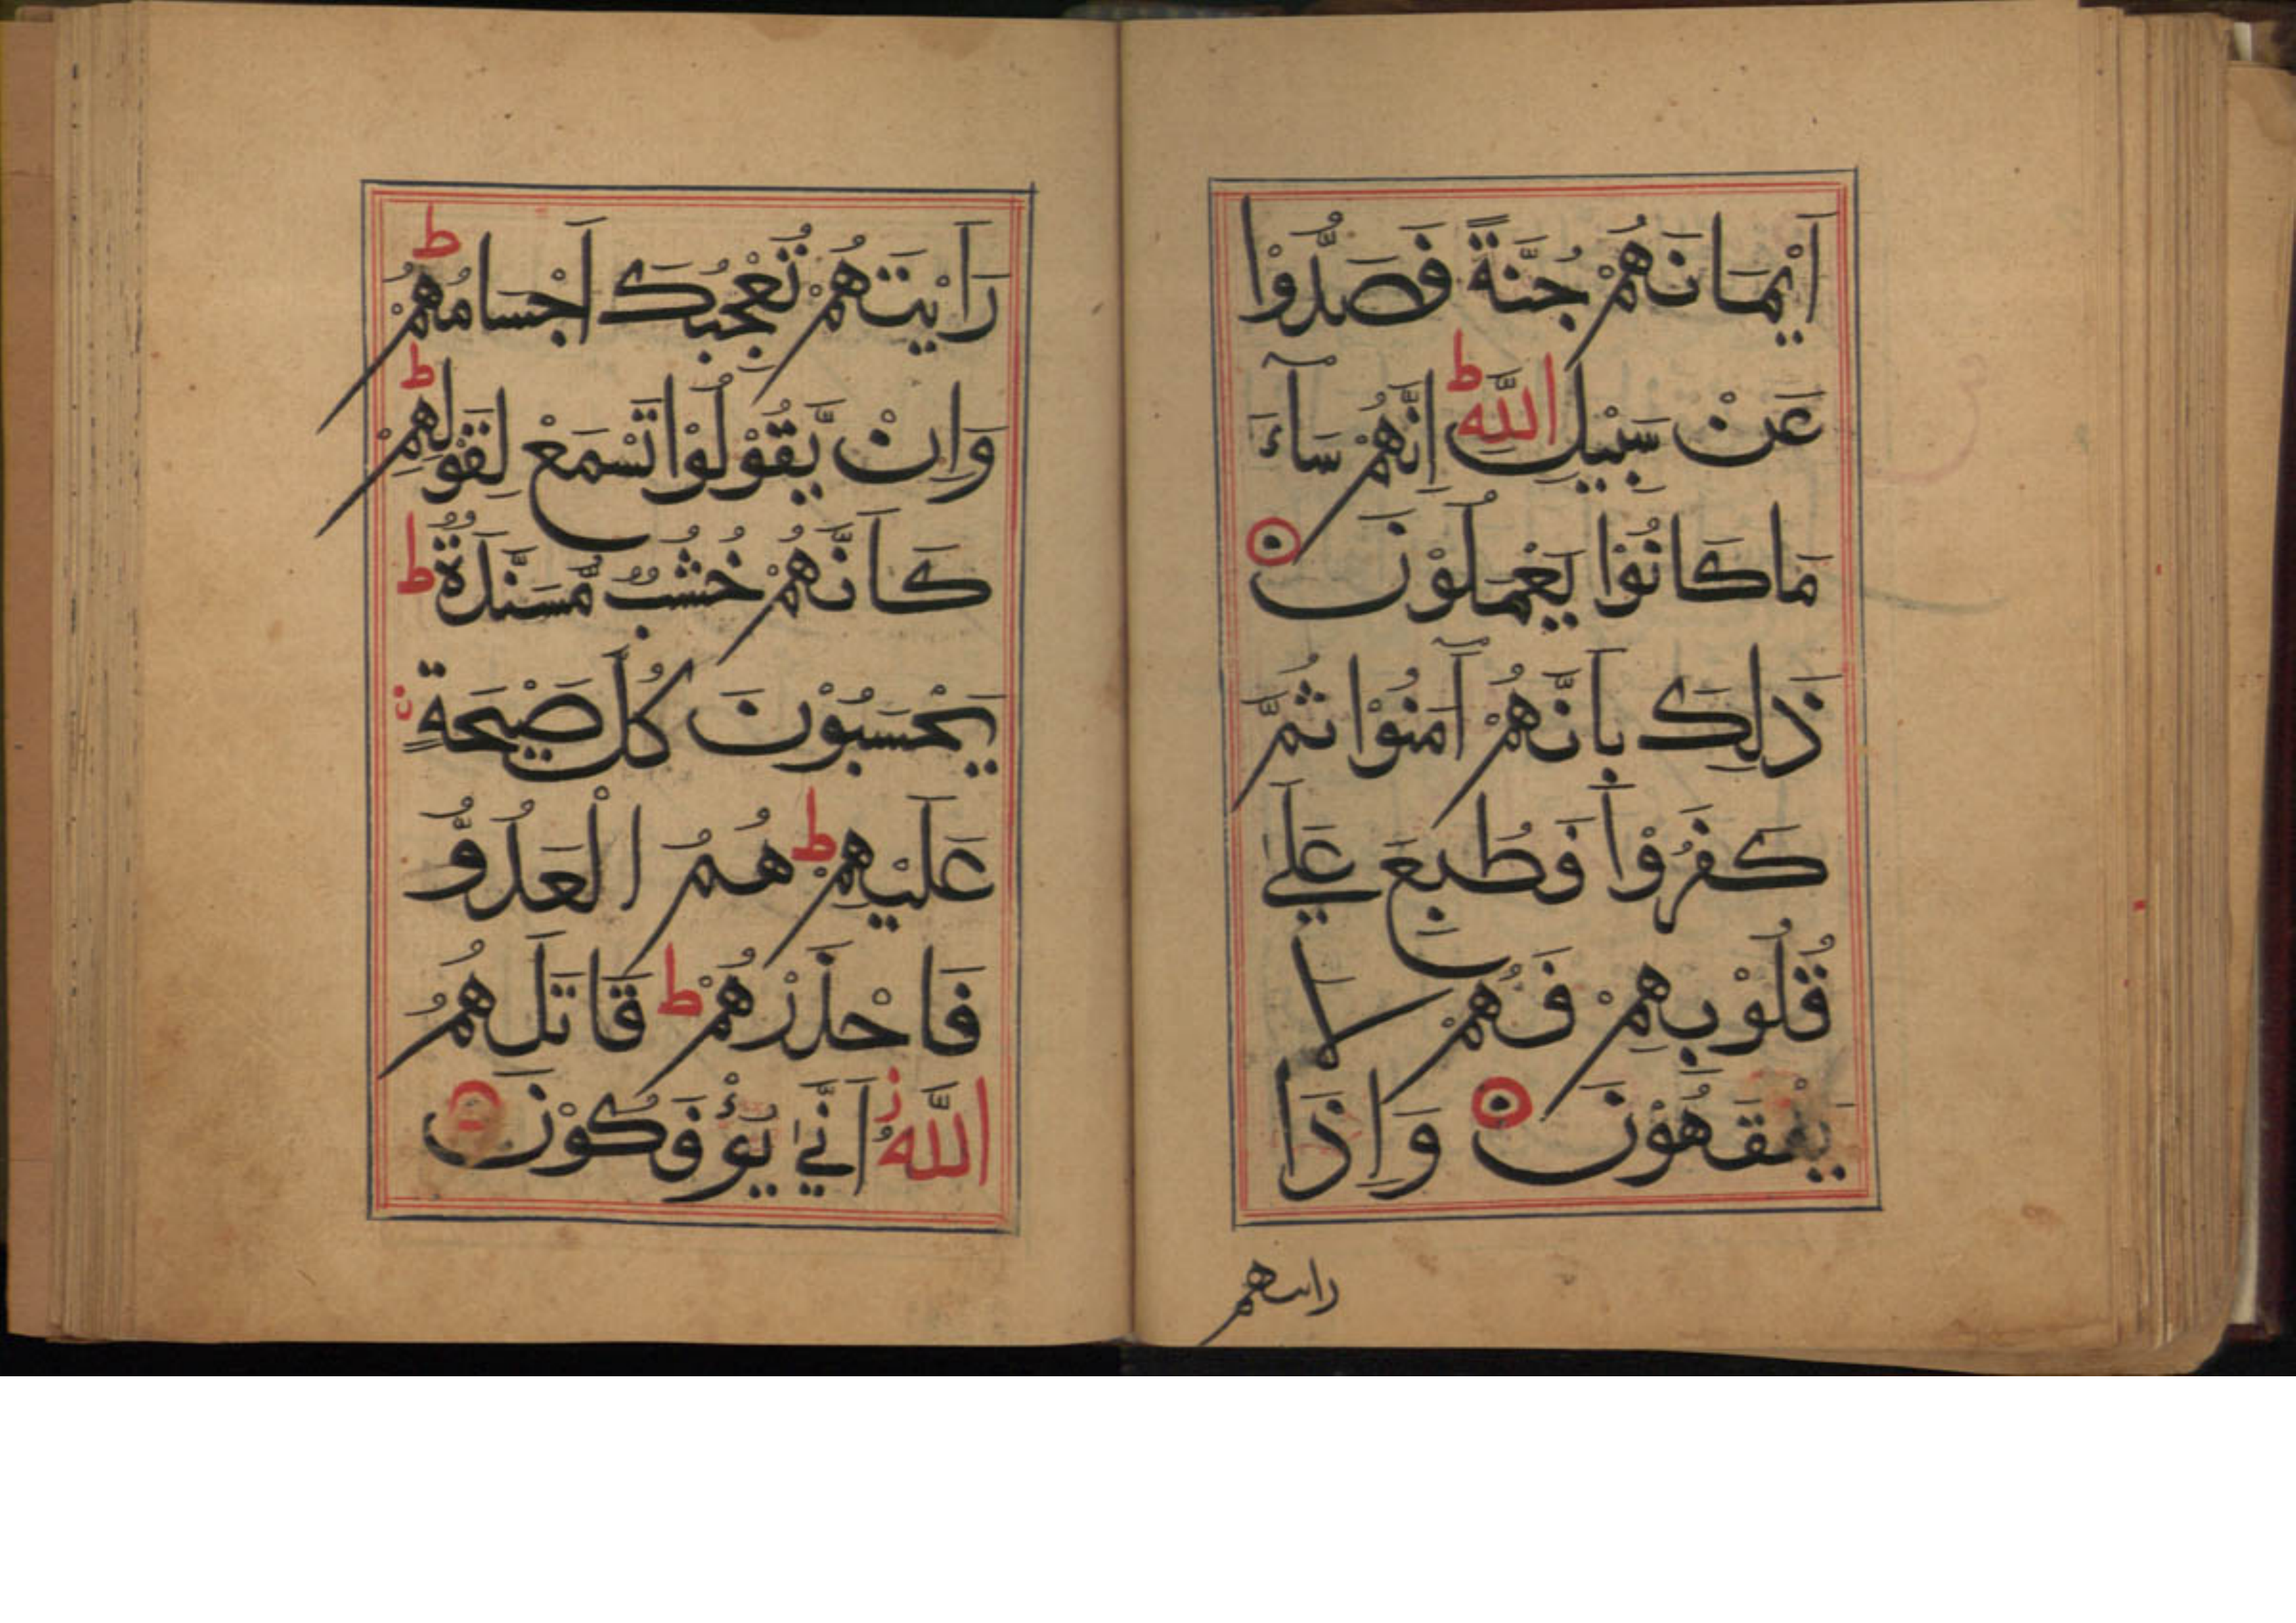 اَيْمَانَهُمْ جُنَّةً فَصَدُّوْا
عَنْ سَبِيْلِ اللّٰهِ ط اِنَّهُمْ سَآءَ
مَا كَانُوْا يَعْمَلُوْنَ
ذَلِكَ بِاَنَّهُمْ آمَنُوْا ثُمَّ
كَفَرُوْا فَطُبِعَ عَلٰي
قُلُوْبِهِمْ فَهُمْ لَا
يَفْقَهُوْنَ وَاِذَا
راىتهم
رَاَيْتَهُمْ تُعْجِبُكَ اَجْسَامُهُمْ ط
وَاِنْ يَّقُوْلُوْا تَسْمَعْ لِقَوْلِهِمْ ط
كَاَنَّهُمْ خُشُبٌ مُّسَنَّدَةٌ ط
يَحْسَبُوْنَ كُلَّ صَيْحَةٍ
عَلَيْهِمْ ط هُمُ الْعَدُوُّ
فَاحْذَرْهُمْ ط قَاتَلَهُمُ
اللّٰهُ ز اَنّٰي يُؤْفَكُوْنَ